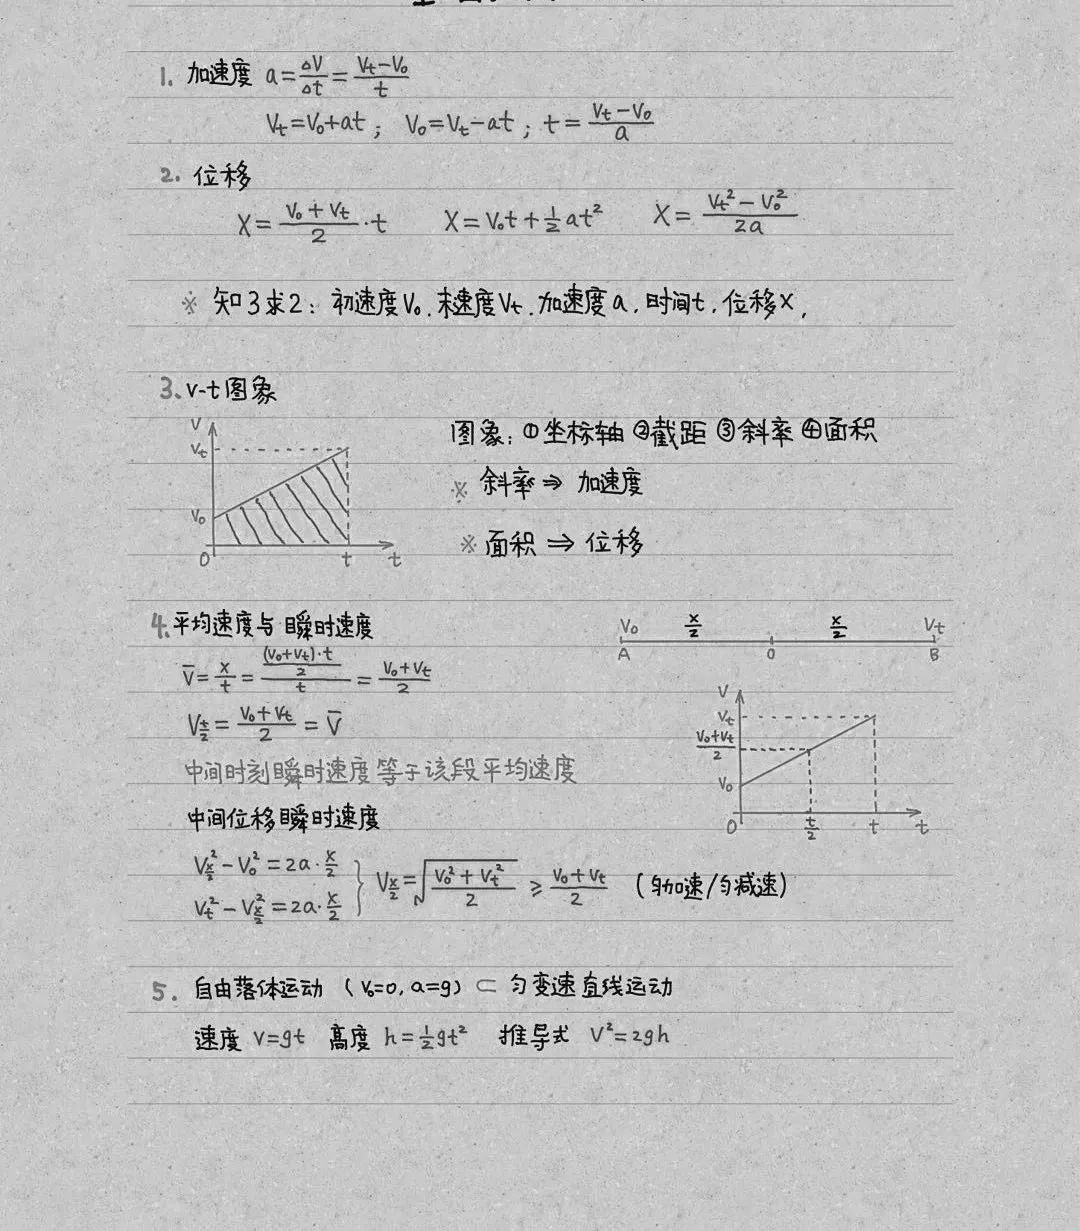 1. 加速度 a=ΔV/Δt=(Vt-V₀)/t
Vt=V₀+at; V₀=Vt-at; t=(Vt-V₀)/a
2. 位移
X=(V₀+Vt)/2·t X=V₀t+½at² X=(Vt²-V₀²)/2a
※ 知3求2: 初速度V₀.末速度Vt.加速度a.时间t.位移x,
3. v-t图象
V
Vt
V₀
0 t t
图象: ①坐标轴 ②截距 ③斜率 ④面积
※ 斜率⇒加速度
※ 面积⇒位移
4. 平均速度与瞬时速度
V̄=x/t=((V₀+Vt)·t/2)/t=(V₀+Vt)/2
V_{t/2}=(V₀+Vt)/2=V̄
中间时刻瞬时速度等于该段平均速度
中间位移瞬时速度
V_{x/2}²-V₀²=2a·x/2
Vt²-V_{x/2}²=2a·x/2
} V_{x/2}=√((V₀²+Vt²)/2) ⩾ (V₀+Vt)/2 (匀加速/匀减速)
V₀ x/2 x/2 Vt
A 0 B
V
Vt
(V₀+Vt)/2
V₀
0 t/2 t t
5. 自由落体运动 (V₀=0, a=g) ⊂ 匀变速直线运动
速度 v=gt 高度 h=½gt² 推导式 V²=2gh